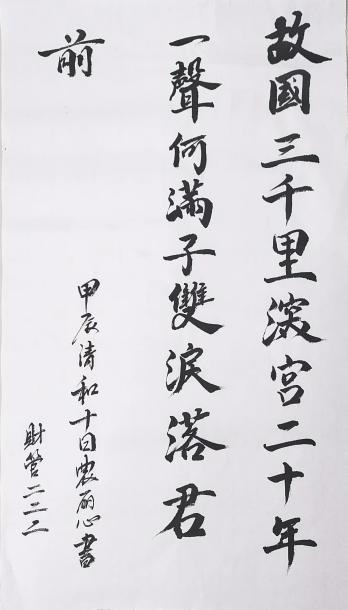 故國三千里深宮二十年
一聲何滿子雙淚落君
前
甲辰清和十日農丽心書
財管二二二